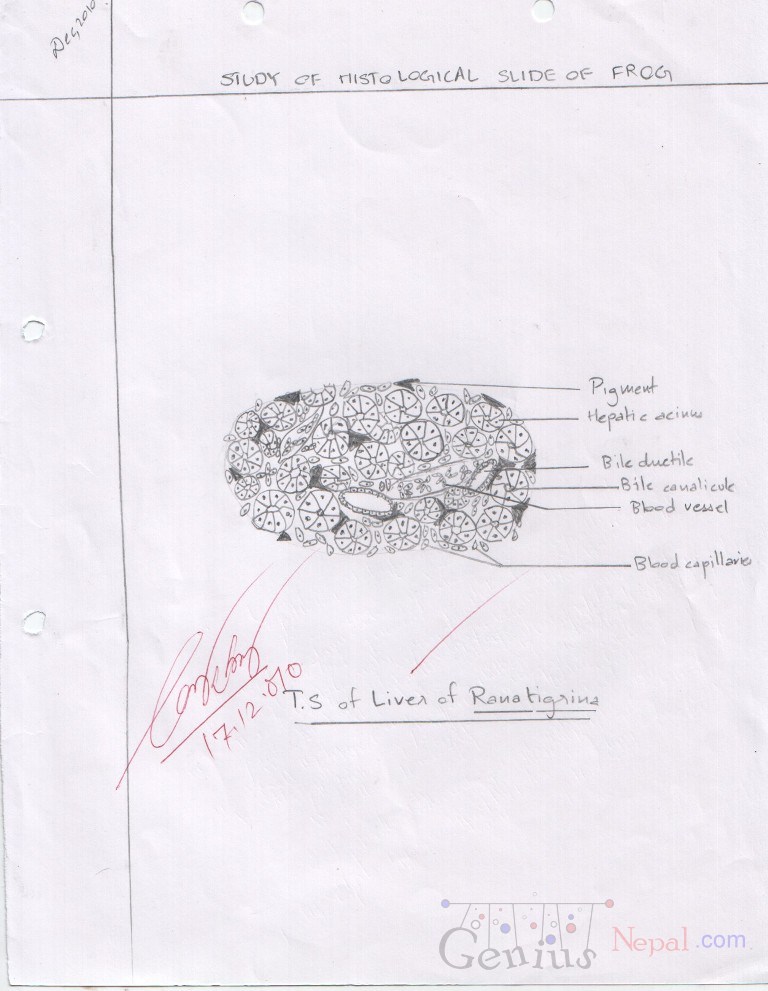 Dec, 2010
STUDY OF HISTOLOGICAL SLIDE OF FROG
Pigment
Hepatic acinus
Bile ductile
Bile canalicule
Blood vessel
Blood capillaries
17.12.010
T.S of Liver of Rana tigrina
Genius Nepal.com